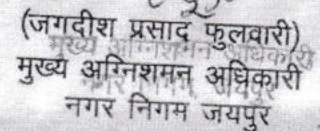 (जगदीश प्रसाद फुलवारी)
मुख्य अग्निशमन अधिकारी
नगर निगम जयपुर